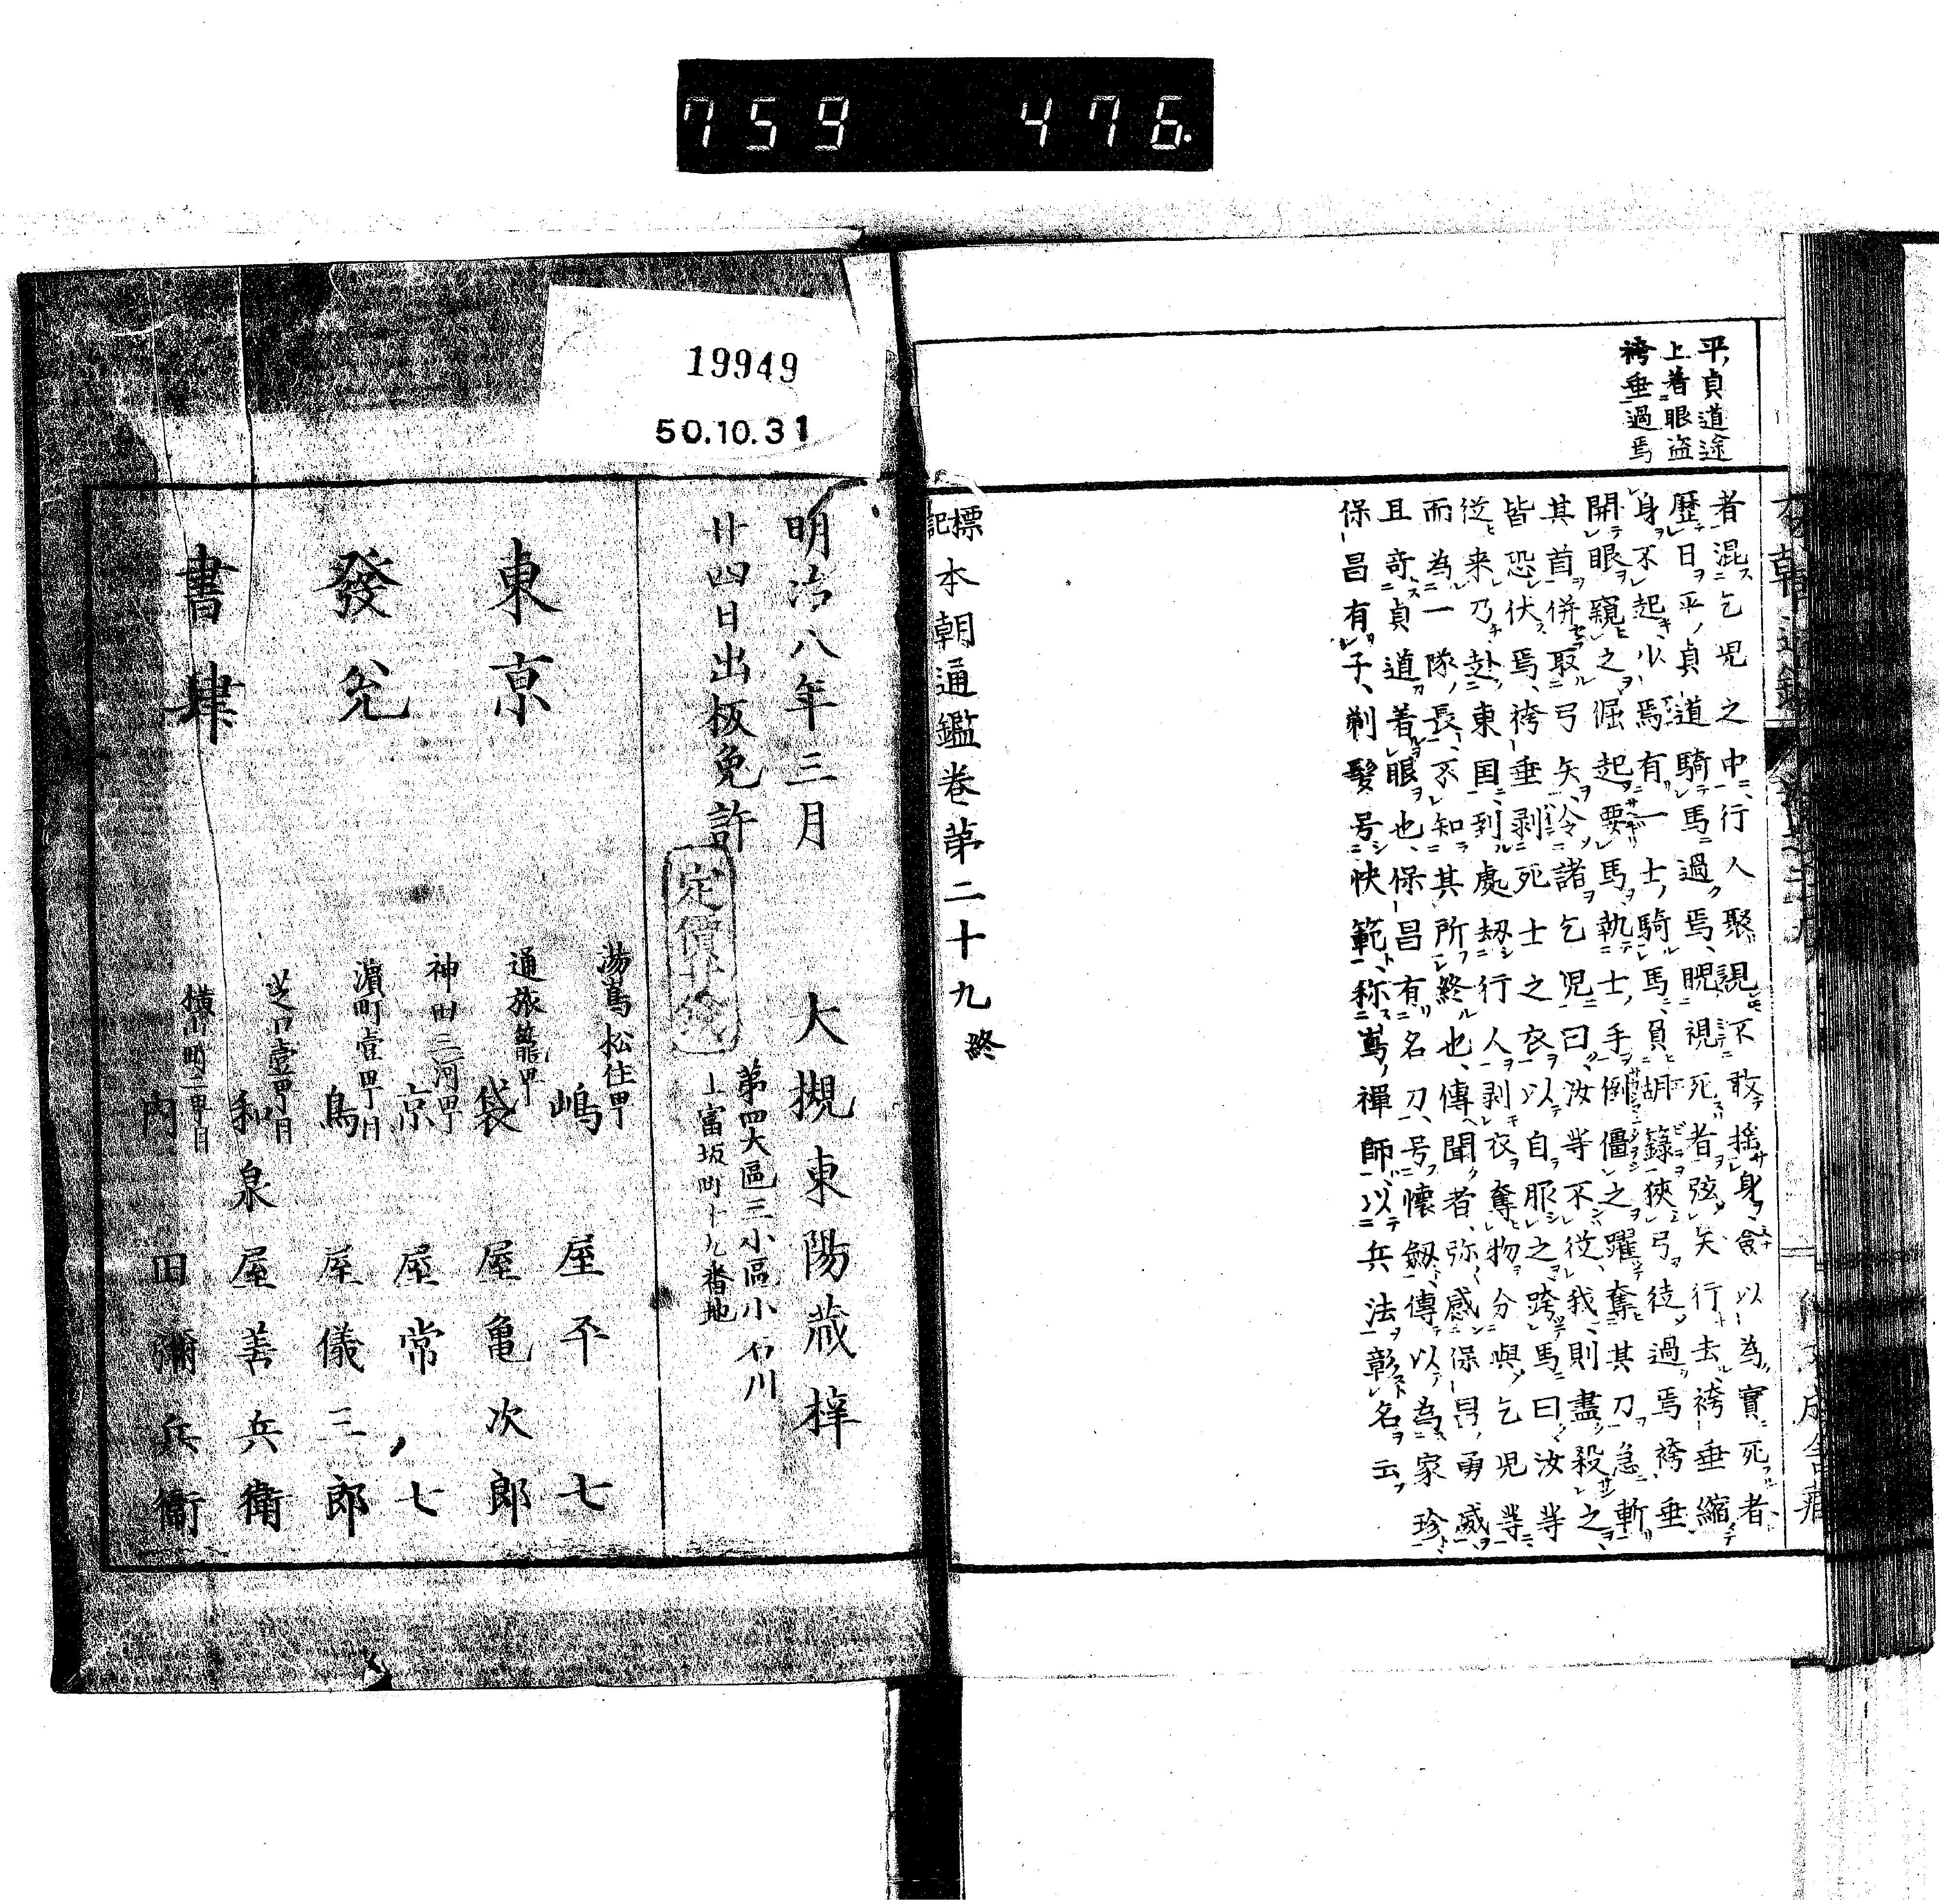 759 476
平貞道途
上着眼盗
袴垂過焉
者混乞児之中行人聚観不敢揺身僉以為實死者
歴日平貞道騎馬過焉睨視死者弦矢行去袴垂縮
身不起少焉有一士騎馬負胡籙狹弓徒過焉袴垂
開眼窺之倔起要馬執士手倒僵之躍奪其刀急斬
其首併取弓矢令諸乞児曰汝等不従我則盡殺之
皆恐伏焉袴垂剥死士之衣以自服之跨馬曰汝等
従来乃赴東国到處劫行人剥衣奪物分與乞児等
而為一隊長不知其所終也傳聞者弥感保昌勇威
且奇貞道着眼也保昌有名刀号懐剱傳以為家珍
保昌有子剃髪号快範称蔦禅師以兵法彰名云
標記 本朝通鑑卷第二十九終
明治八年三月
廿四日出板免許
大槻東陽蔵梓
第四大區三小區小石川
上富坂町十九番地
定價
東京
發兌
書肆
湯島松住町
嶋屋平七
通旅籠町
袋屋亀次郎
神田三河町
京屋常七
濵町壹町目
鳥屋儀三郎
芝口壹町目
和泉屋善兵衛
横山町二町目
内田彌兵衛
19949
50.10.31